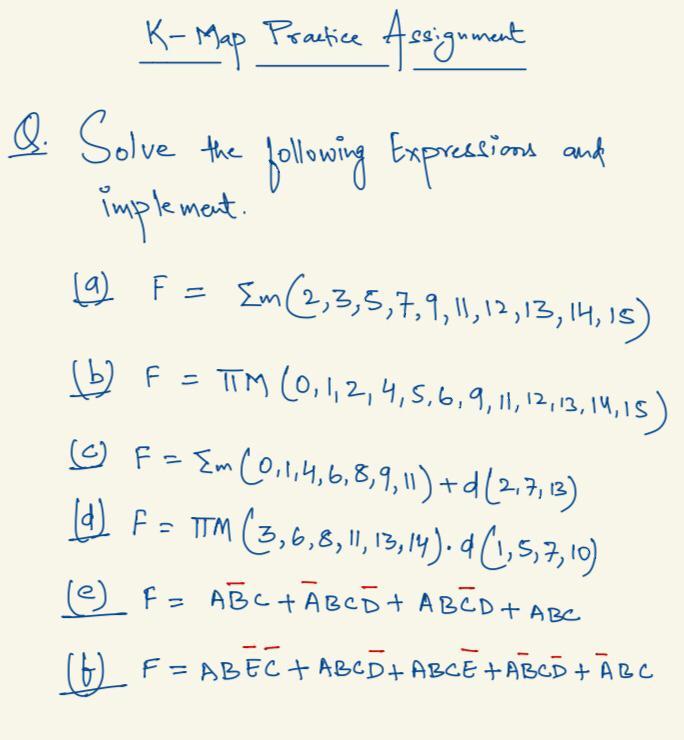 K-Map Practice Assignment
Q. Solve the following Expressions and
implement.
(a) F = Σm(2,3,5,7,9,11,12,13,14,15)
(b) F = πM(0,1,2,4,5,6,9,11,12,13,14,15)
(c) F = Σm(0,1,4,6,8,9,11)+d(2,7,13)
(d) F = πM(3,6,8,11,13,14).d(1,5,7,10)
(e) F = AB̅C + A̅BCD̅ + ABC̅D + ABC
(f) F = ABE̅C̅ + ABCD̅ + ABCE̅ + A̅BCD̅ + A̅BC